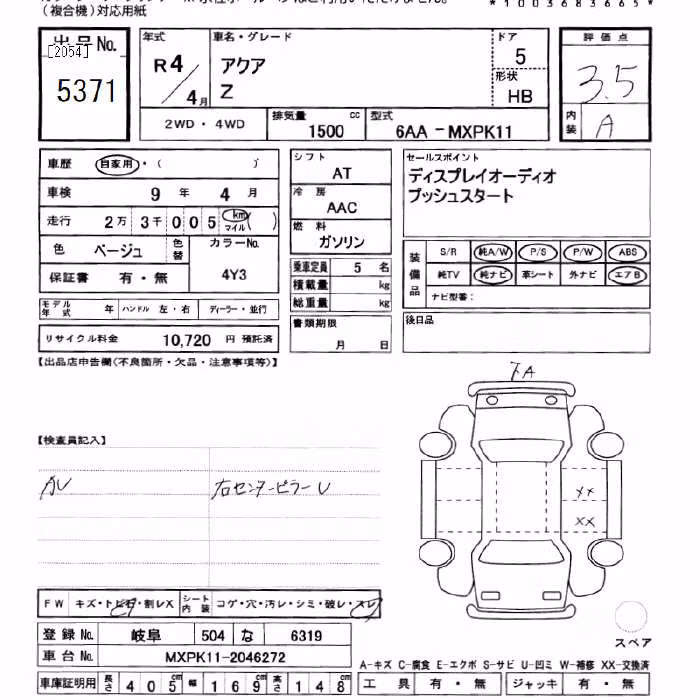 (複合機)対応用紙
*1003683665*
出品No. [2054] 5371
年式 R4/4月
車名・グレード アクア Z
ドア 5
形状 HB
評価点 3.5
内装 A
2WD・4WD
排気量 1500 cc
型式 6AA-MXPK11
車歴 自家用・( )
車検 9年 4月
走行 2万3千005 km マイル ( )
色 ベージュ 色替 カラーNo. 4Y3
保証書 有・無
モデル年式 年 ハンドル 左・右 ディーラー・並行
リサイクル料金 10,720 円 預託済
シフト AT
冷房 AAC
燃料 ガソリン
乗車定員 5 名
積載量 kg
総重量 kg
書類期限 月 日
セールスポイント
ディスプレイオーディオ
プッシュスタート
装備品 S/R 純A/W P/S P/W ABS
純TV 純ナビ 革シート 外ナビ エアB
ナビ型番:
後日品
【出品店申告欄(不良箇所・欠品・注意事項等)】
【検査員記入】
AU
右センターピラーU
A
XX
XX
スペア
FW キズ・トビ石・割レX シート内装 コゲ・穴・汚レ・シミ・破レ・スレ
登録No. 岐阜 504 な 6319
車台No. MXPK11-2046272
車庫証明用 長さ 405cm 幅 169cm 高さ 148
A-キズ C-腐食 E-エクボ S-サビ U-凹ミ W-補修 XX-交換済
工具 有・無 ジャッキ 有・無